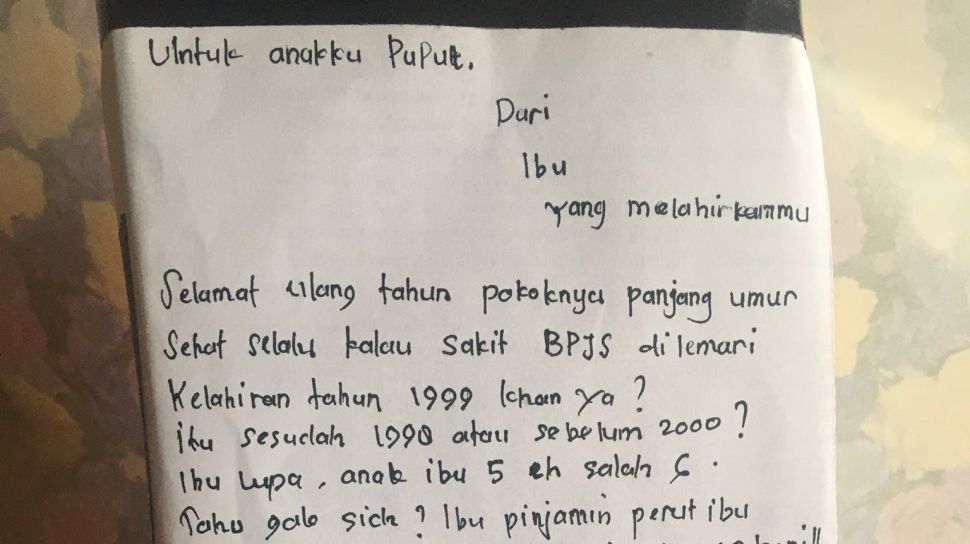 Untuk anakku Puput.
Dari
Ibu
yang melahirkanmu
Selamat ulang tahun pokoknya panjang umur
Sehat selalu kalau sakit BPJS di lemari
Kelahiran tahun 1999 khan ya ?
itu sesudah 1998 atau sebelum 2000 ?
Ibu lupa, anak ibu 5 eh salah 6 .
Tahu gak sich ? Ibu pinjamin perut ibu